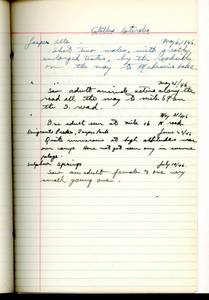 Citellus lateralis
Jasper Alta. May 6, 1946.
Shot two males, with greatly
enlarged testes, by the roadside
on the way to Medicine Lake.
" " May 21/46
Saw adult animals active along the
road all the way to mile 59 on
the I. road.
" " May 31/46
One adult seen at mile 16 N road
Parks, Jasper Park June 24/46
Quite numerous at high altitudes near
our camp. Have not yet seen any in summer
pelage.
Sulphur Springs July 14/46.
Saw an adult female & one very
small young one.